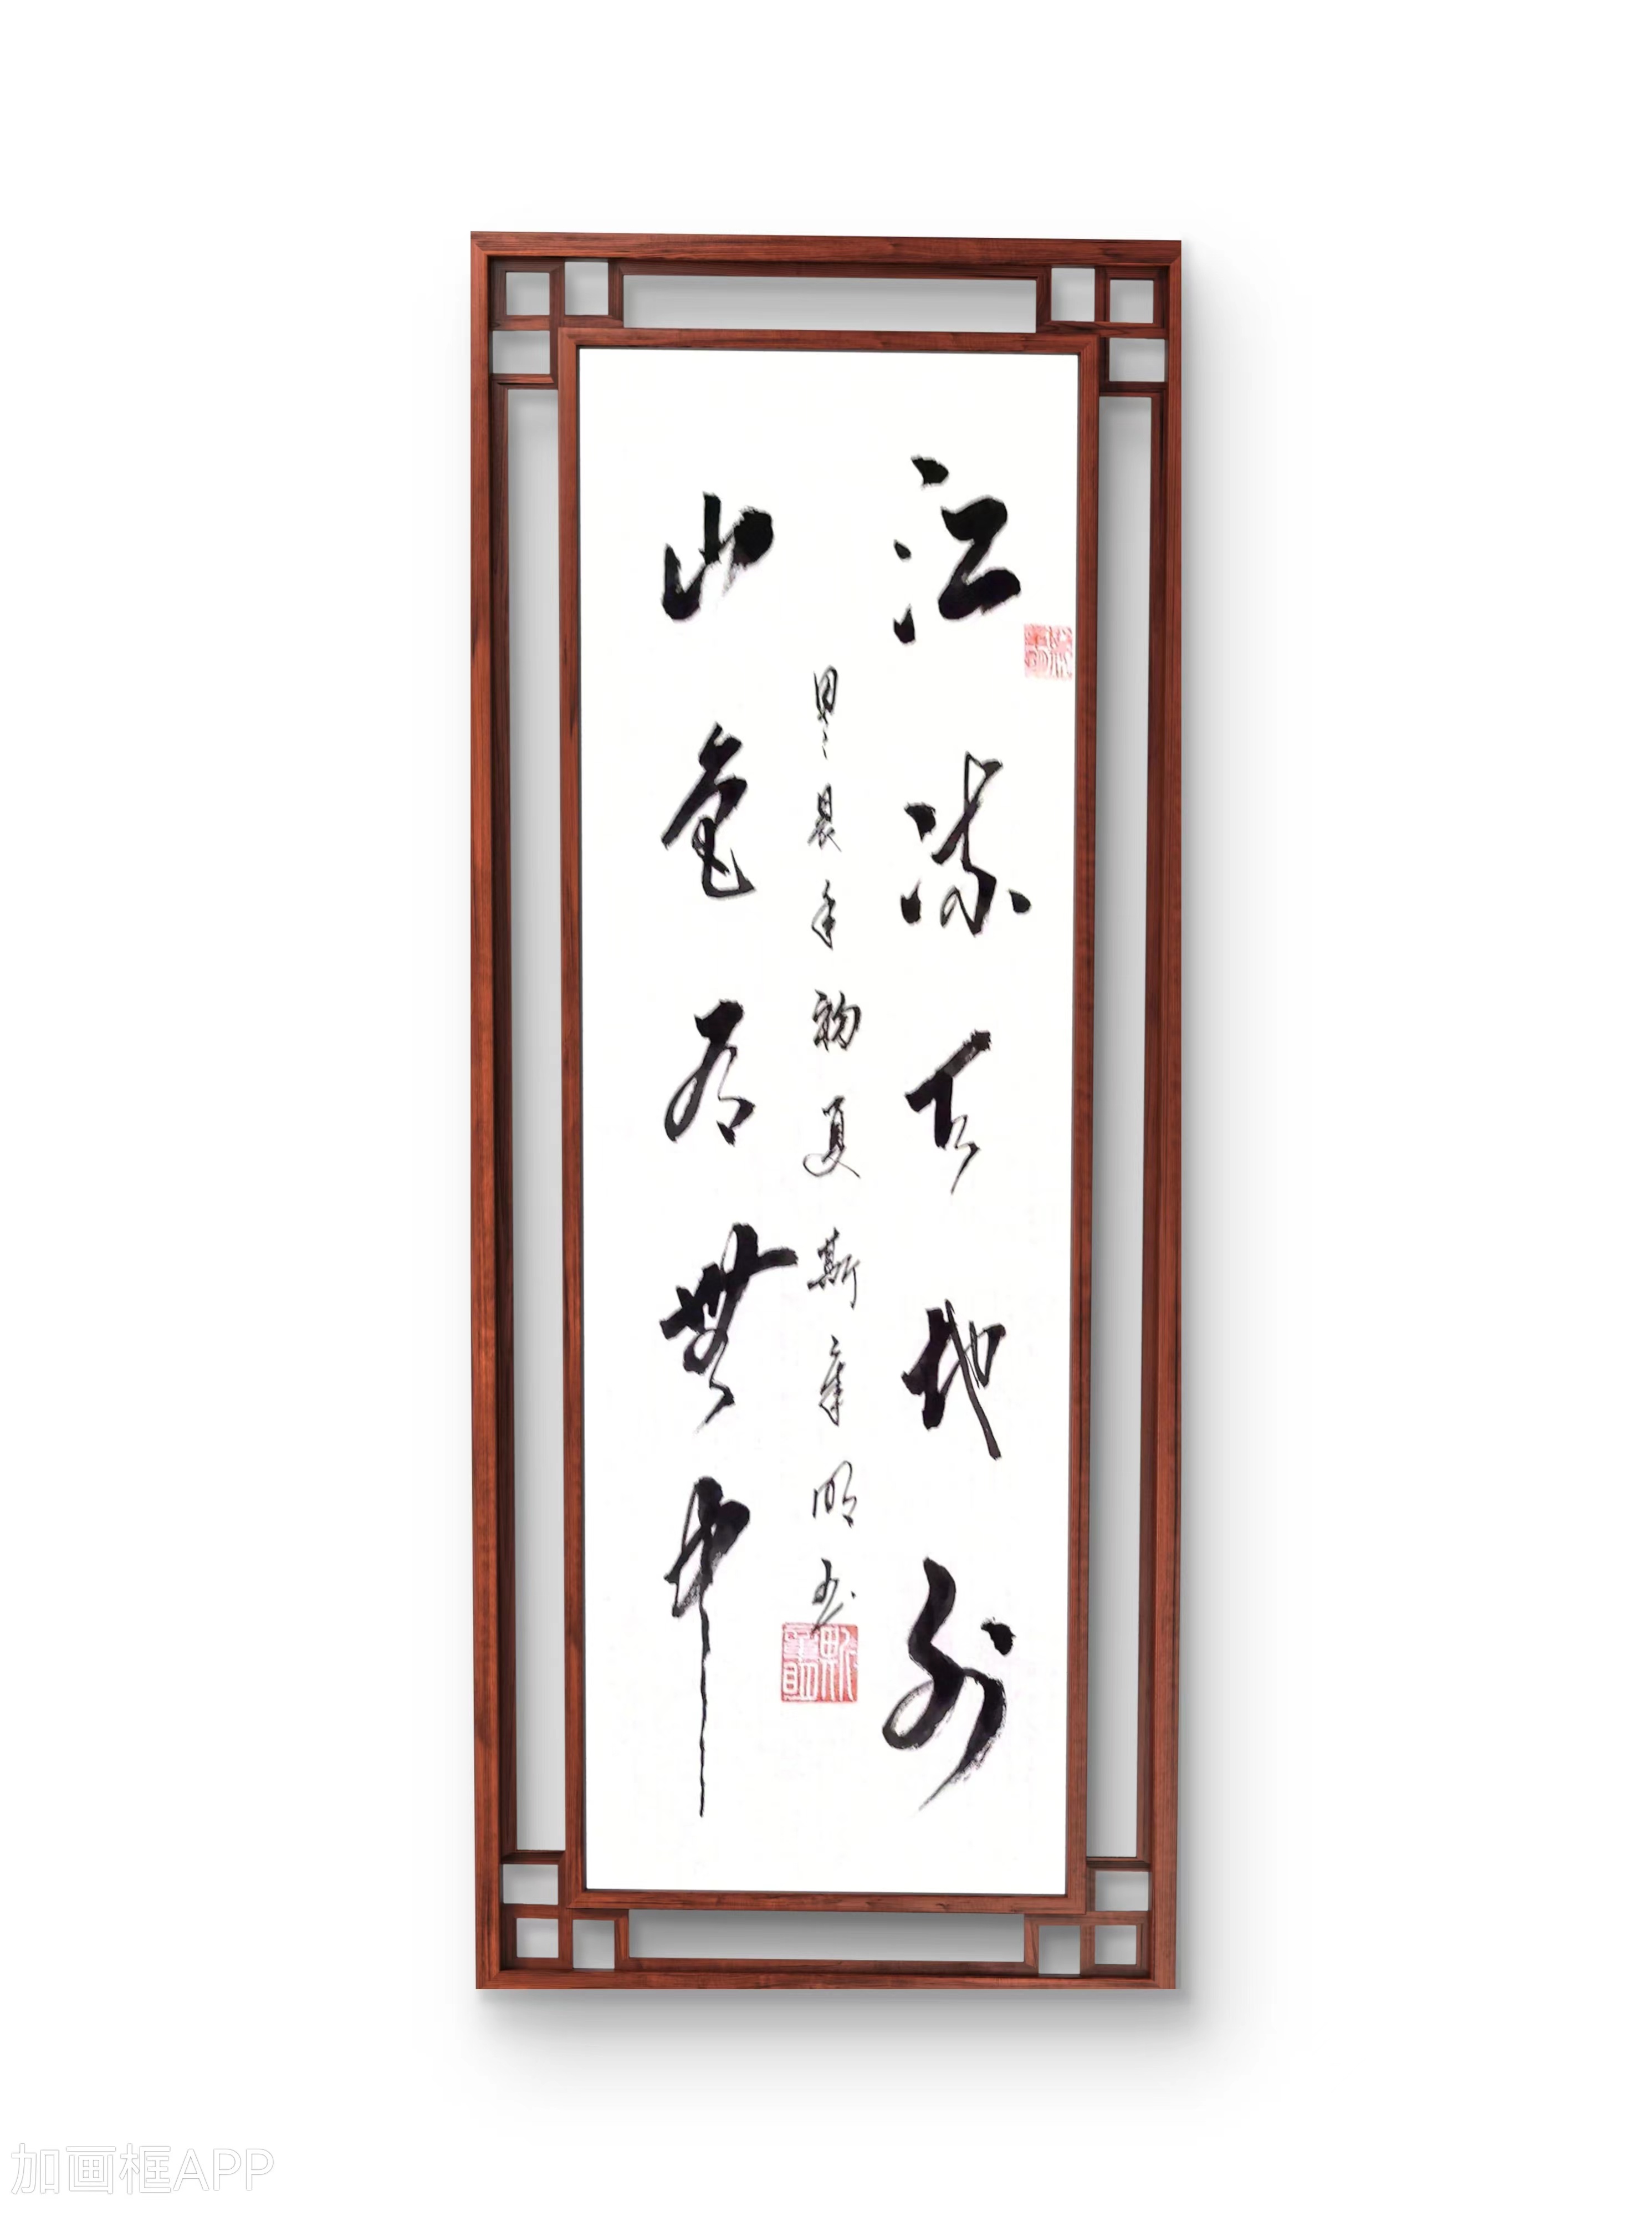 江流天地外
山色有無中
甲辰年初夏斯章明书
加画框APP